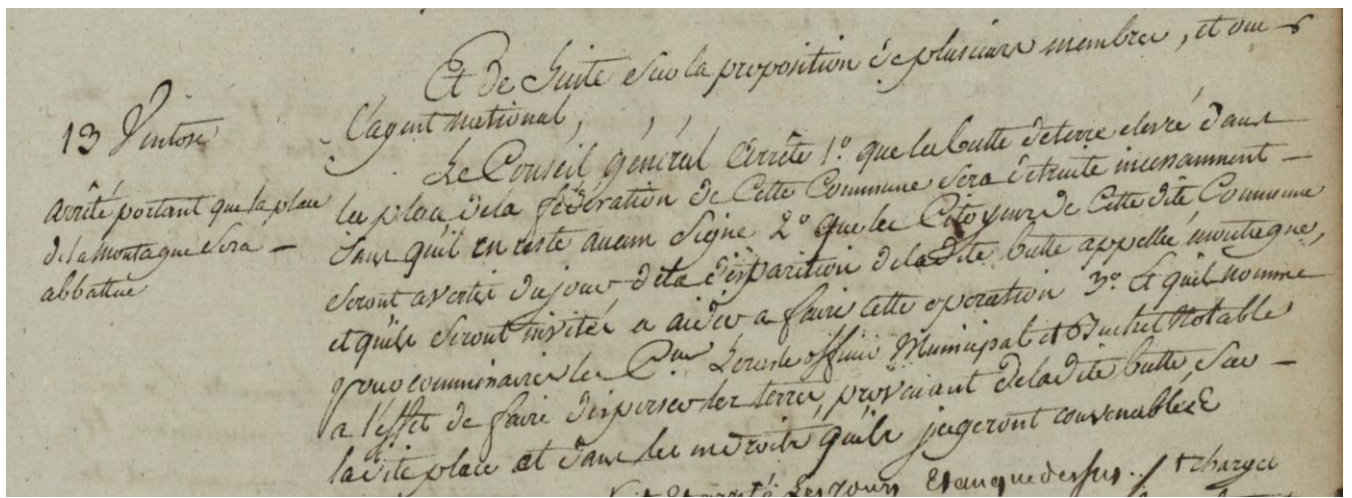 13 Ventose
arrêté portant que la place
de la montagne sera —
abbattue
Et de Suite sur la proposition de plusieurs membres, et oui
l'agent national,
Le Conseil général arrête 1o. que la butte de terre elevée dans
la place de la fédération de Cette Commune sera détruite incessamment —
sans qu'il en reste aucun Signe 2o que les Citoyens de Cette dite Commune
seront avertis du jour de la disparition de la dite butte appellée montagne,
et qu'ils seront invités a aider a faire cette operation 3o. Et qu'il nomme
pour commissaires les C.ens officier Municipal et Notable
a l'effet de faire disperser les terres, provenant de la dite butte, sur —
la dite place et dans les endroits qu'ils jugeront convenables
et arrêté Les jours Et an que dessus. / chargés